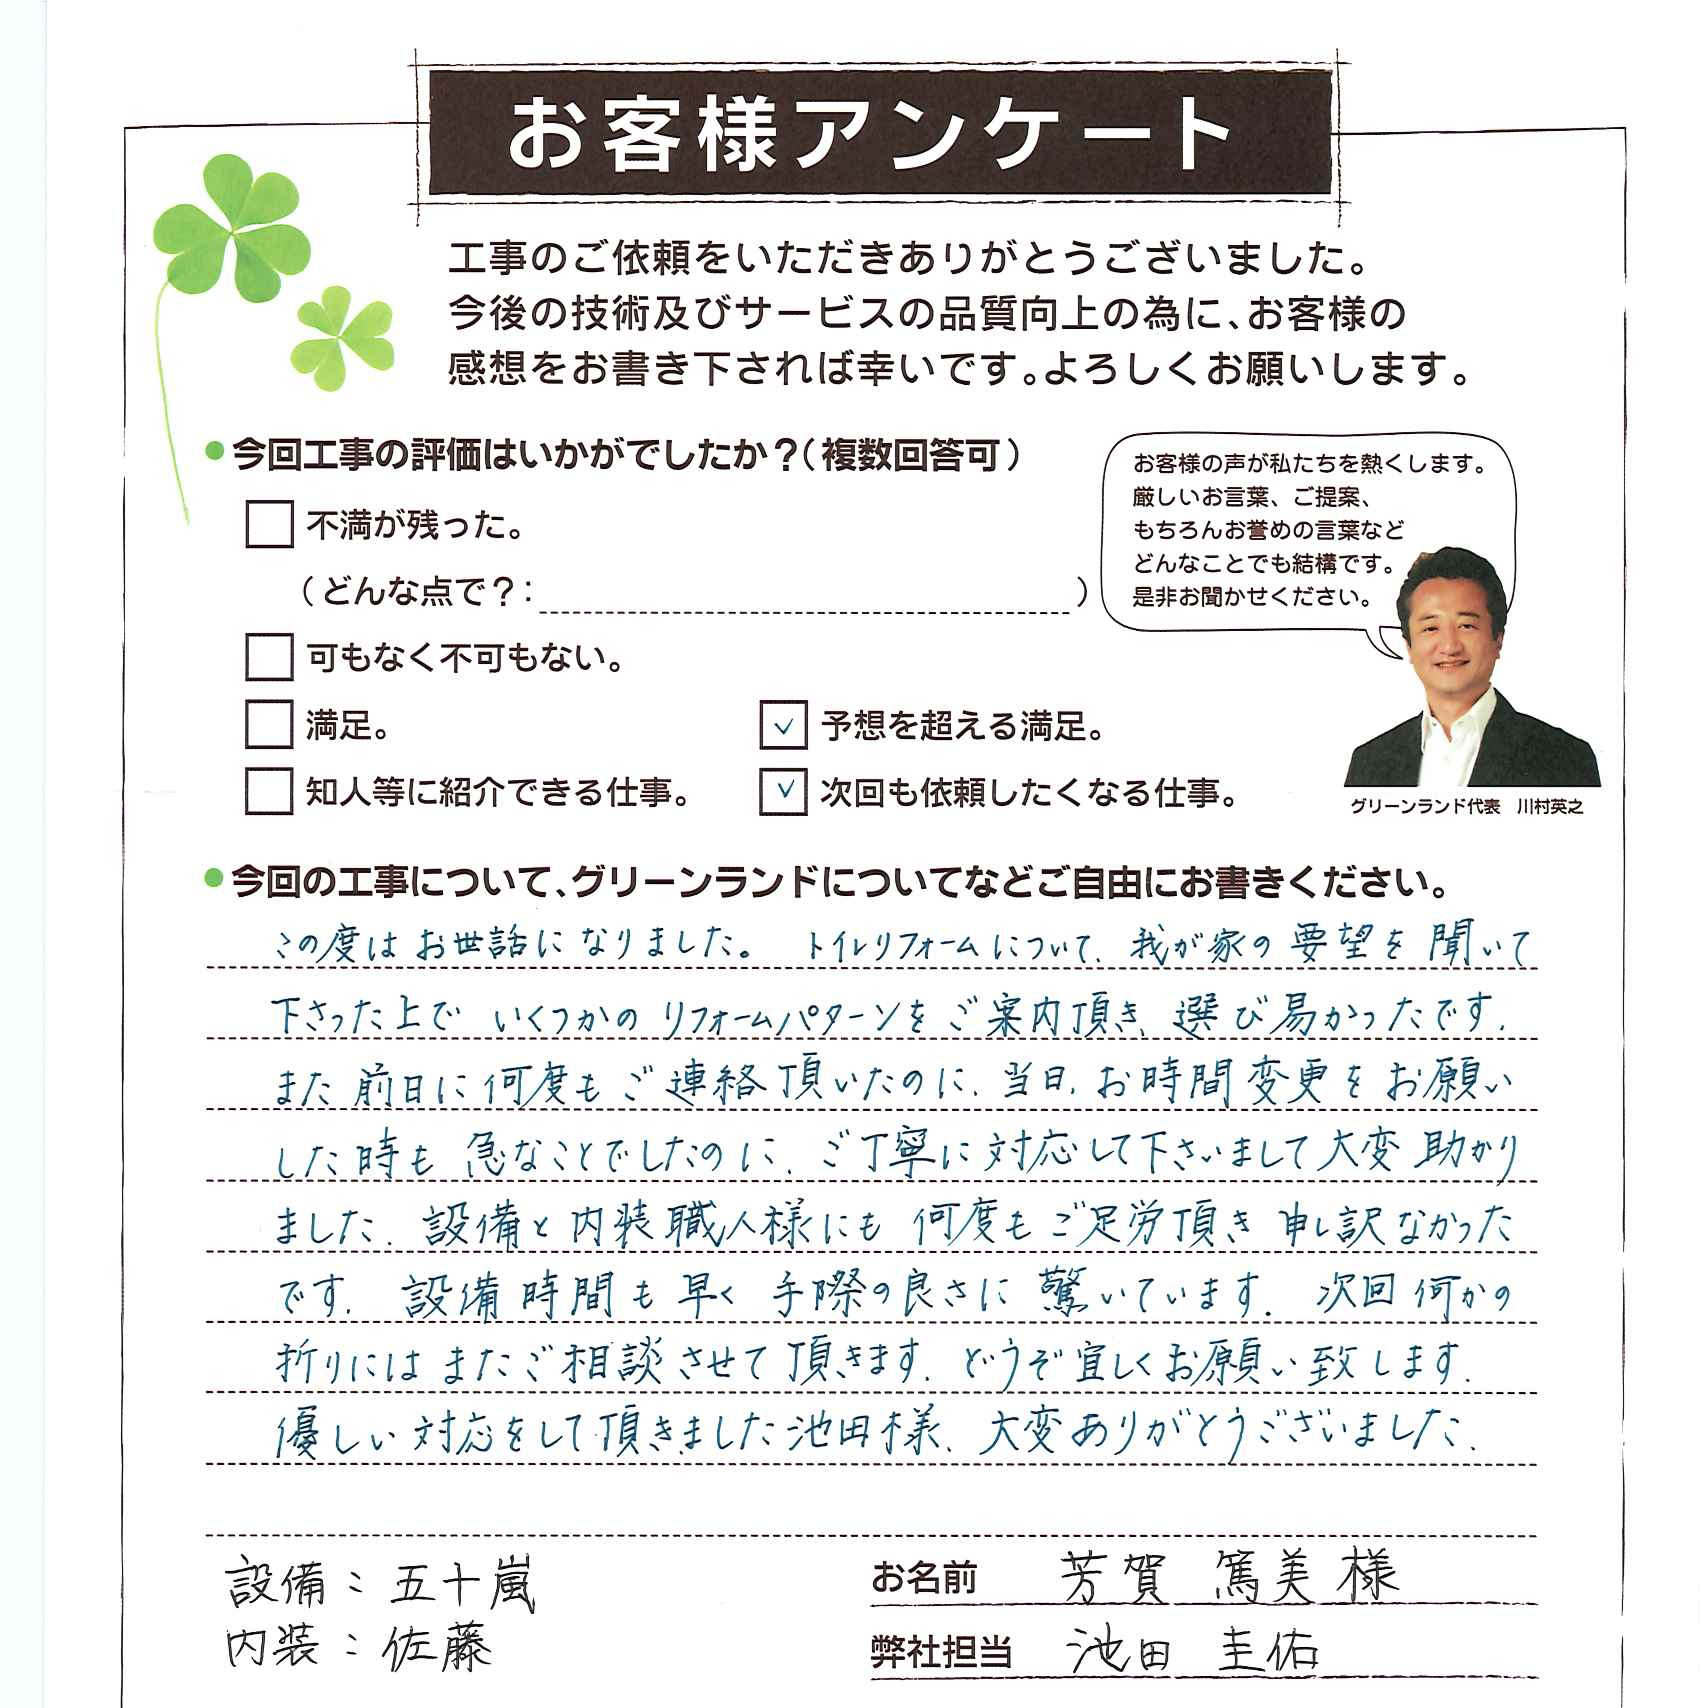 お客様アンケート
工事のご依頼をいただきありがとうございました。
今後の技術及びサービスの品質向上の為に、お客様の
感想をお書き下されば幸いです。よろしくお願いします。
●今回工事の評価はいかがでしたか？（複数回答可）
不満が残った。
（どんな点で？：　）
可もなく不可もない。
満足。
✓ 予想を超える満足。
知人等に紹介できる仕事。
✓ 次回も依頼したくなる仕事。
お客様の声が私たちを熱くします。
厳しいお言葉、ご提案、
もちろんお誉めの言葉など
どんなことでも結構です。
是非お聞かせください。
グリーンランド代表　川村英之
●今回の工事について、グリーンランドについてなどご自由にお書きください。
この度はお世話になりました。トイレリフォームについて、我が家の要望を聞いて
下さった上でいくつかのリフォームパターンをご案内頂き、選び易かったです.
また前日に何度もご連絡頂いたのに、当日、お時間変更をお願い
した時も急なことでしたのに、ご丁寧に対応して下さいまして大変助かり
ました. 設備と内装職人様にも何度もご足労頂き申し訳なかった
です. 設備時間も早く手際の良さに驚いています. 次回何かの
折りにはまたご相談させて頂きます. どうぞ宜しくお願い致します.
優しい対応をして頂きました池田様、大変ありがとうございました.
設備：五十嵐
内装：佐藤
お名前　芳賀 篤美様
弊社担当　池田 圭佑